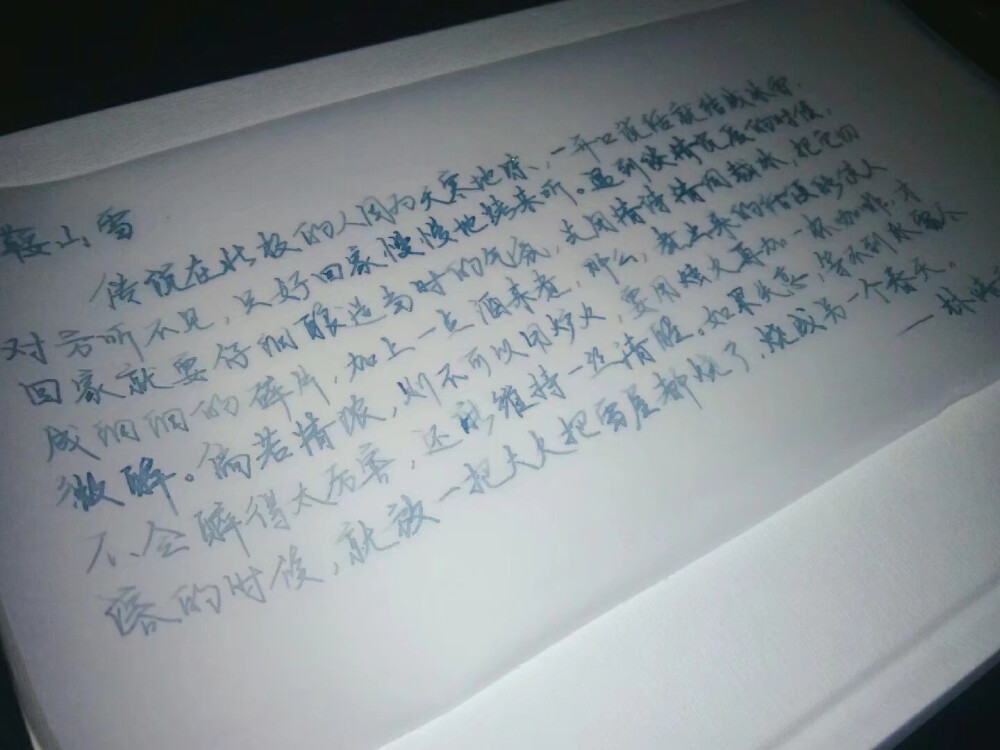 鞍山雪
传说在北极的人因为天寒地冻,一开口说话就结成冰雪,
对方听不见,只好回家慢慢地烧来听。遇到谈情说爱的时候,
回家就要仔细酿造当时的气氛,先用情诗情词裁冰,把它切
成细细的碎片,加上一点酒来煮,那么,煮出来的话便能使人
微醉。倘若情浓,则不可以用炉火,要用烛火再加一杯咖啡,才
不会醉得太厉害,还能维持一丝清醒。如果失恋,等不到冰雪尽
溶的时候,就放一把大火把雪屋都烧了,烧成另一个春天。
—林